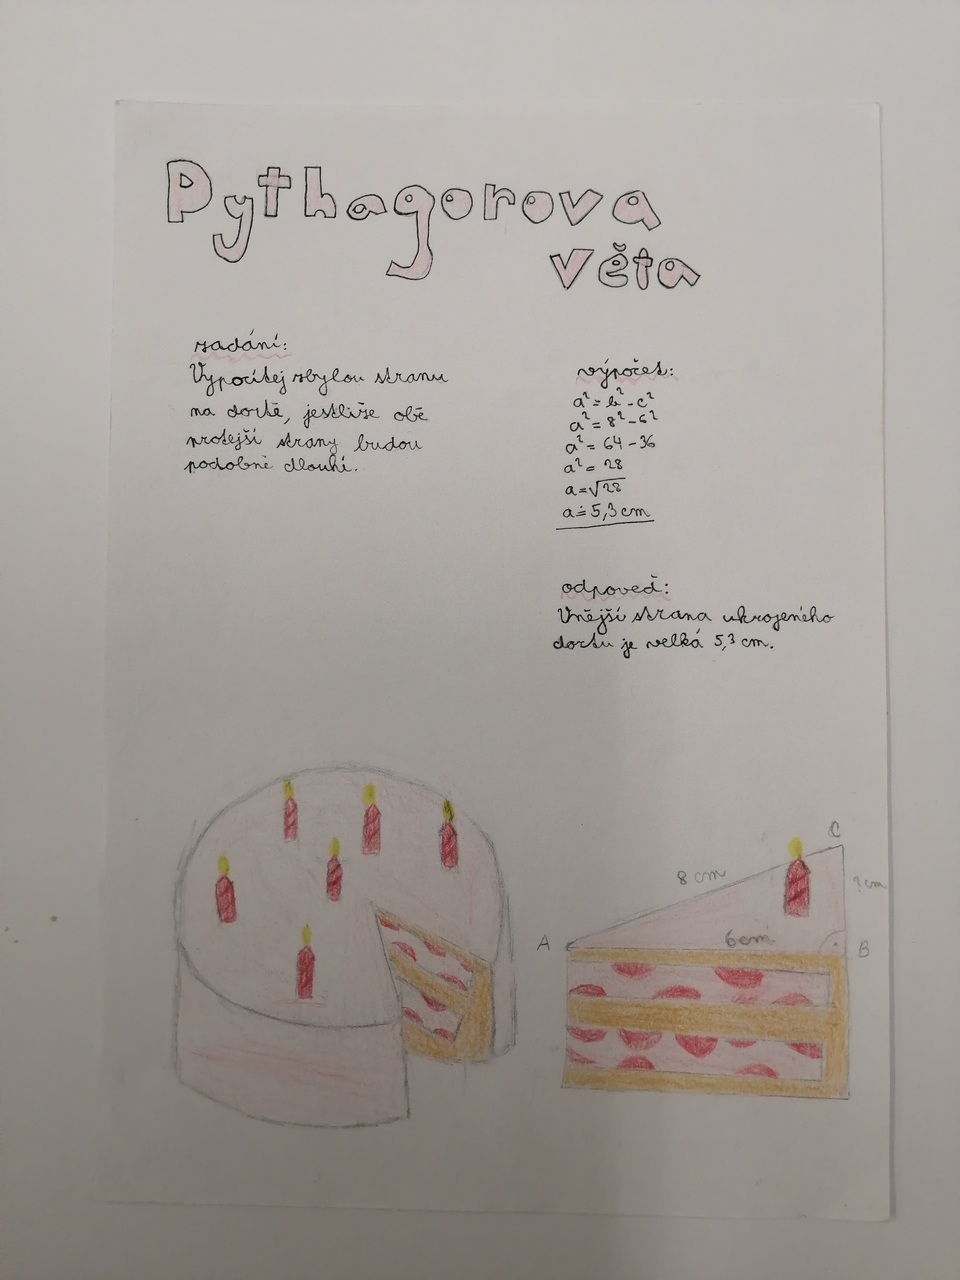 Pythagorova
věta
zadání:
Vypočítej zbylou stranu
na dortě, jestliže obě
protejší strany budou
podobně dlouhí.
výpočet:
a² = b² - c²
a² = 8² - 6²
a² = 64 - 36
a² = 28
a = √28
a ≐ 5,3 cm
odpoveď:
Vnější strana ukrojeného
dortu je velká 5,3 cm.
C
8 cm
? cm
A
6 cm
B